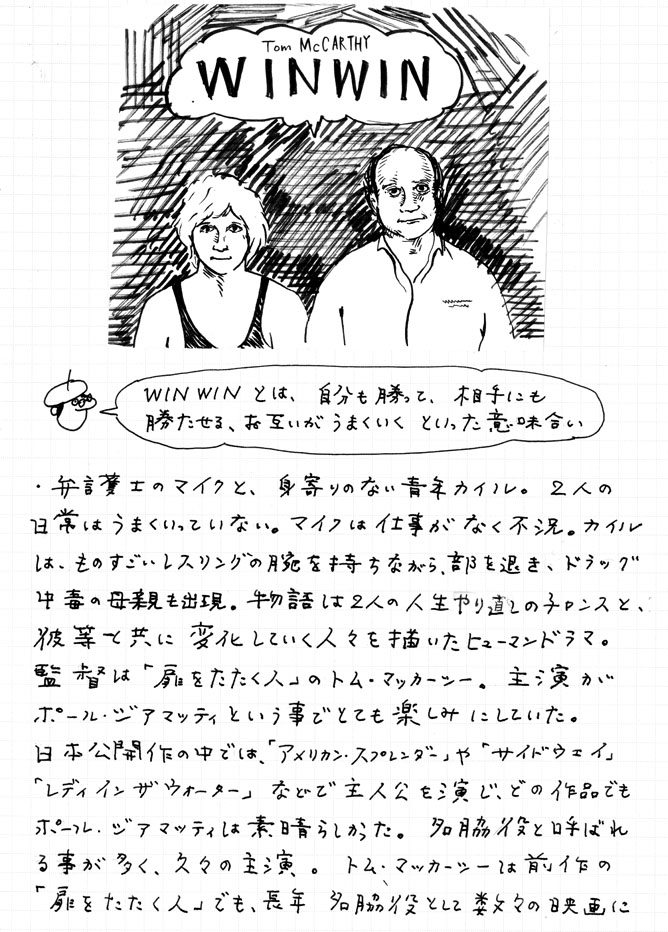 Tom McCARTHY
WINWIN
WIN WIN とは、自分も勝って、相手にも
勝たせる、お互いがうまくいく といった意味合い
・弁護士のマイクと、身寄りのない青年カイル。2人の
日常はうまくいっていない。マイクは仕事がなく不況。カイル
は、ものすごいレスリングの腕を持ちながら、部を退き、ドラッグ
中毒の母親も出現。物語は2人の人生やり直しのチャンスと、
彼等と共に 変化していく人々を描いたヒューマンドラマ。
監督は「扉をたたく人」のトム・マッカーシー。主演が
ポール・ジアマッティという事でとても楽しみにしていた。
日本公開作の中では、「アメリカン・スプレンダー」や「サイドウェイ」
「レディ イン ザ ウォーター」などで主人公を演じ、どの作品でも
ポール・ジアマッティは素晴らしかった。名脇役と呼ばれ
る事が多く、久々の主演。トム・マッカーシーは前作の
「扉をたたく人」でも、長年 名脇役として数々の映画に